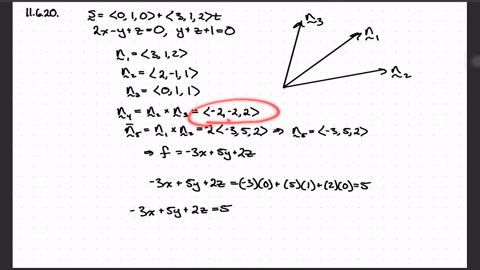 11.6.20. s = <0,1,0> + <3,1,2>t
2x-y+z=0, y+z+1=0
n₁ = <3,1,2>
n₂ = <2,-1,1>
n₃ = <0,1,1>
n₄ = n₂ × n₃ = <-2,-2,2>
n₅ = n₁ × n₄ = 2<-3,5,2> ⇒ n₅ = <-3,5,2>
⇒ f = -3x+5y+2z
-3x+5y+2z = (-3)(0)+(5)(1)+(2)(0)=5
-3x+5y+2z=5
n₃
n₁
n₂